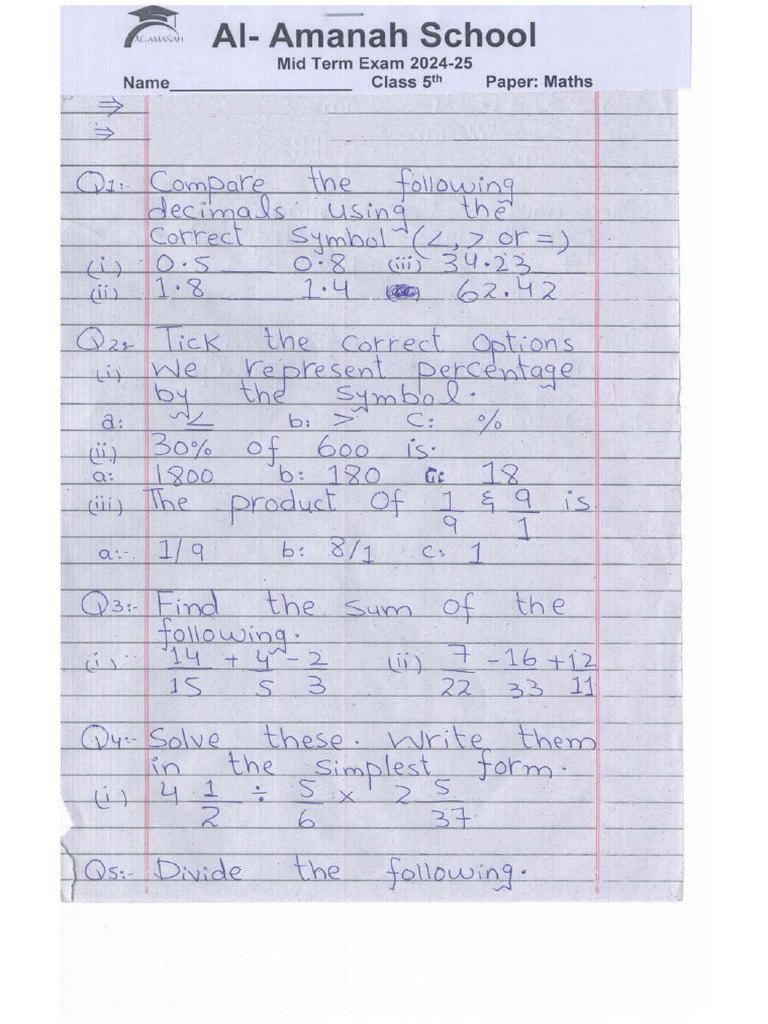 AL-AMANAH
Al- Amanah School
Mid Term Exam 2024-25
Name____________________ Class 5th Paper: Maths
⇒
⇒
Q1:- Compare the following
decimals using the
Correct Symbol (<, > or =)
(i) 0.5 ____ 0.8 (iii) 34.23 ____
(ii) 1.8 ____ 1.4 62.42
Q2:- Tick the correct options
(i) We represent percentage
by the symbol.
a: < b: > c: %
(ii) 30% of 600 is.
a: 1800 b: 180 c: 18
(iii) The product of 1/9 & 9/1 is
a:- 1/9 b: 8/1 c: 1
Q3:- Find the sum of the
following.
(i) 14/15 + 4/5 - 2/3 (ii) 7/22 - 16/33 + 12/11
Q4:- Solve these. Write them
in the simplest form.
(i) 4 1/2 ÷ 5/6 × 2 5/37
Q5:- Divide the following.